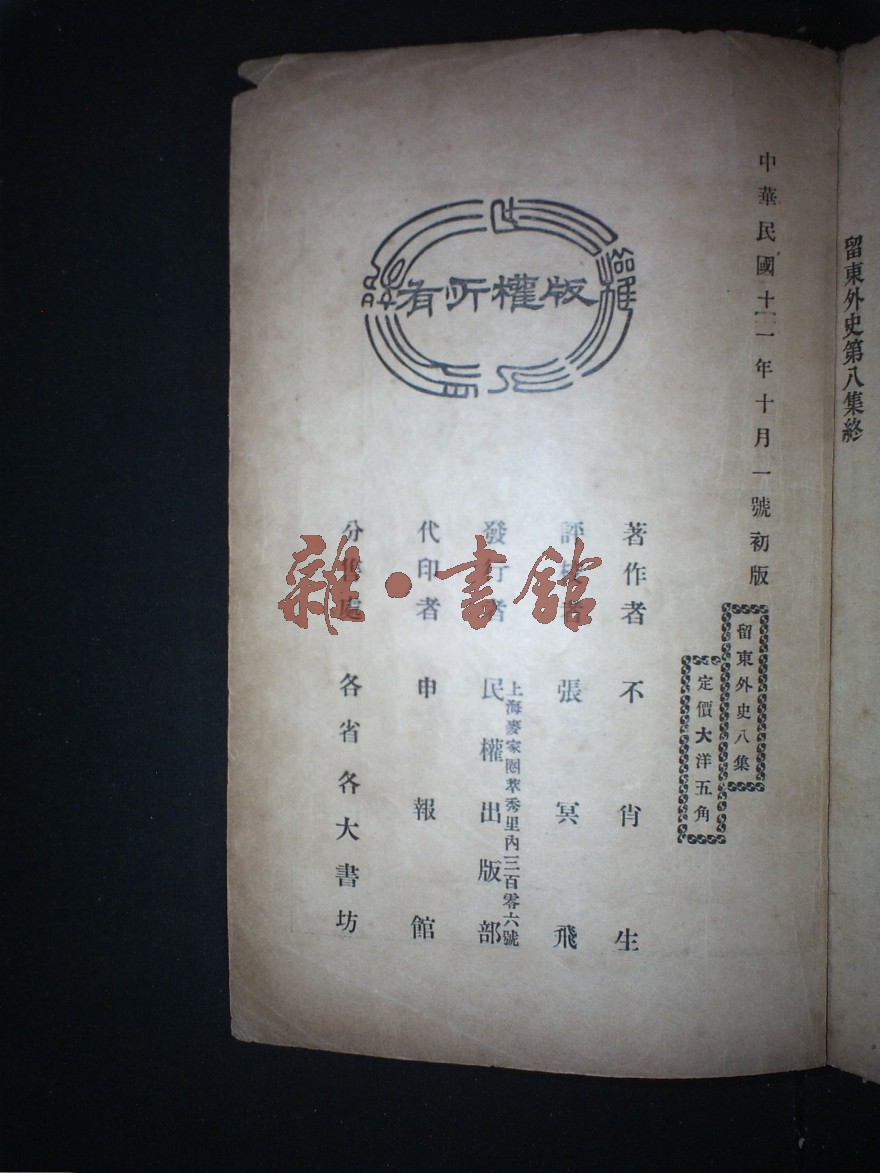 留東外史第八集終
中華民國十一年十月一號初版
留東外史八集
定價大洋五角
版權所有
著作者 不肖生
評者 張冥飛
發行者 民權出版部
上海麥家圈萃秀里內三百零六號
代印者 申報館
分售處 各省各大書坊
雜·書館